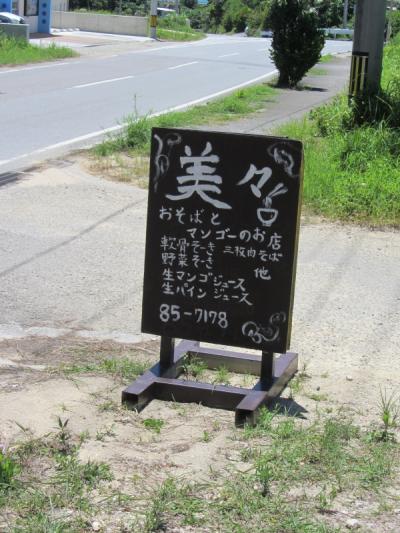 美々
おそばと
マンゴーのお店
軟骨そーき 三枚肉そば
野菜そーき 他
生マンゴジュース
生パインジュース
85-7178